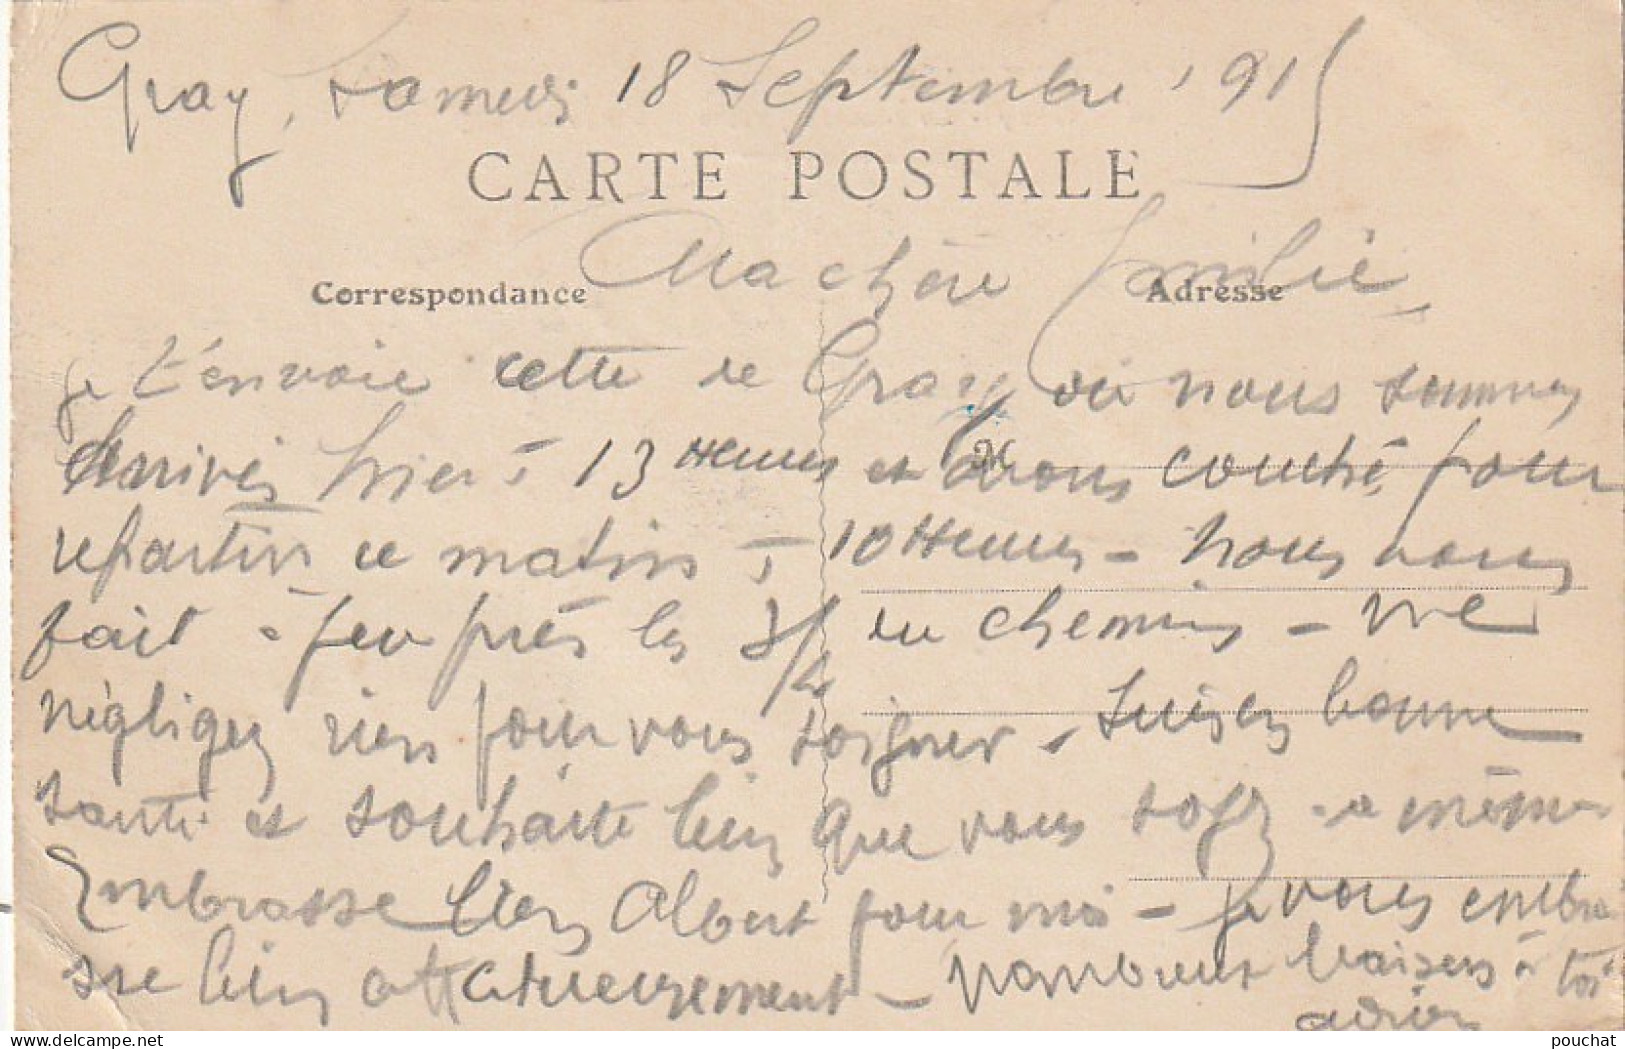 Gray, Samedi 18 Septembre 1915
CARTE POSTALE
Ma chère Emilie,
Correspondance
Adresse
je t'envoie cette de Gray où nous sommes
arrivés hier à 13 Heures et avons couché, pour
repartir ce matin à 10 Heures - nous avons
fait à peu près les 3/4 du chemin - ne
négligez rien pour vous soigner - suis en bonne
santé et souhaite bien que vous soyez de même
Embrasse bien Albert pour moi - je vous embra
sse bien affectueusement - nombreux baisers à toi
adrien
pouchat